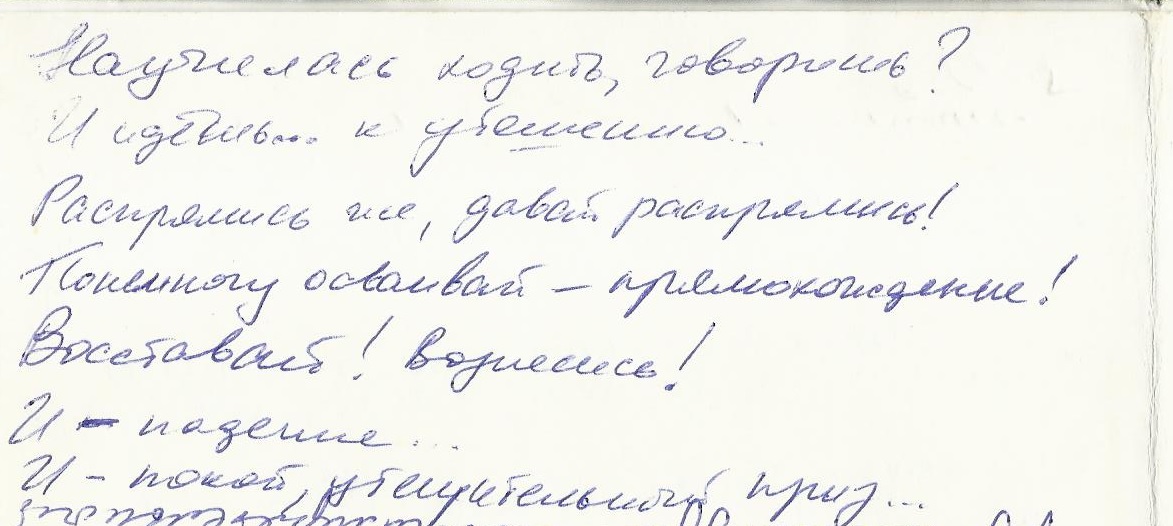 Научилась ходить, говоришь?
И идёшь... к утешению...
Распрямись же, давай распрямись!
Понемногу осваивай – прямохождение!
Восставай! Вознесись!
И – падение...
И – покой, утешительный приз...